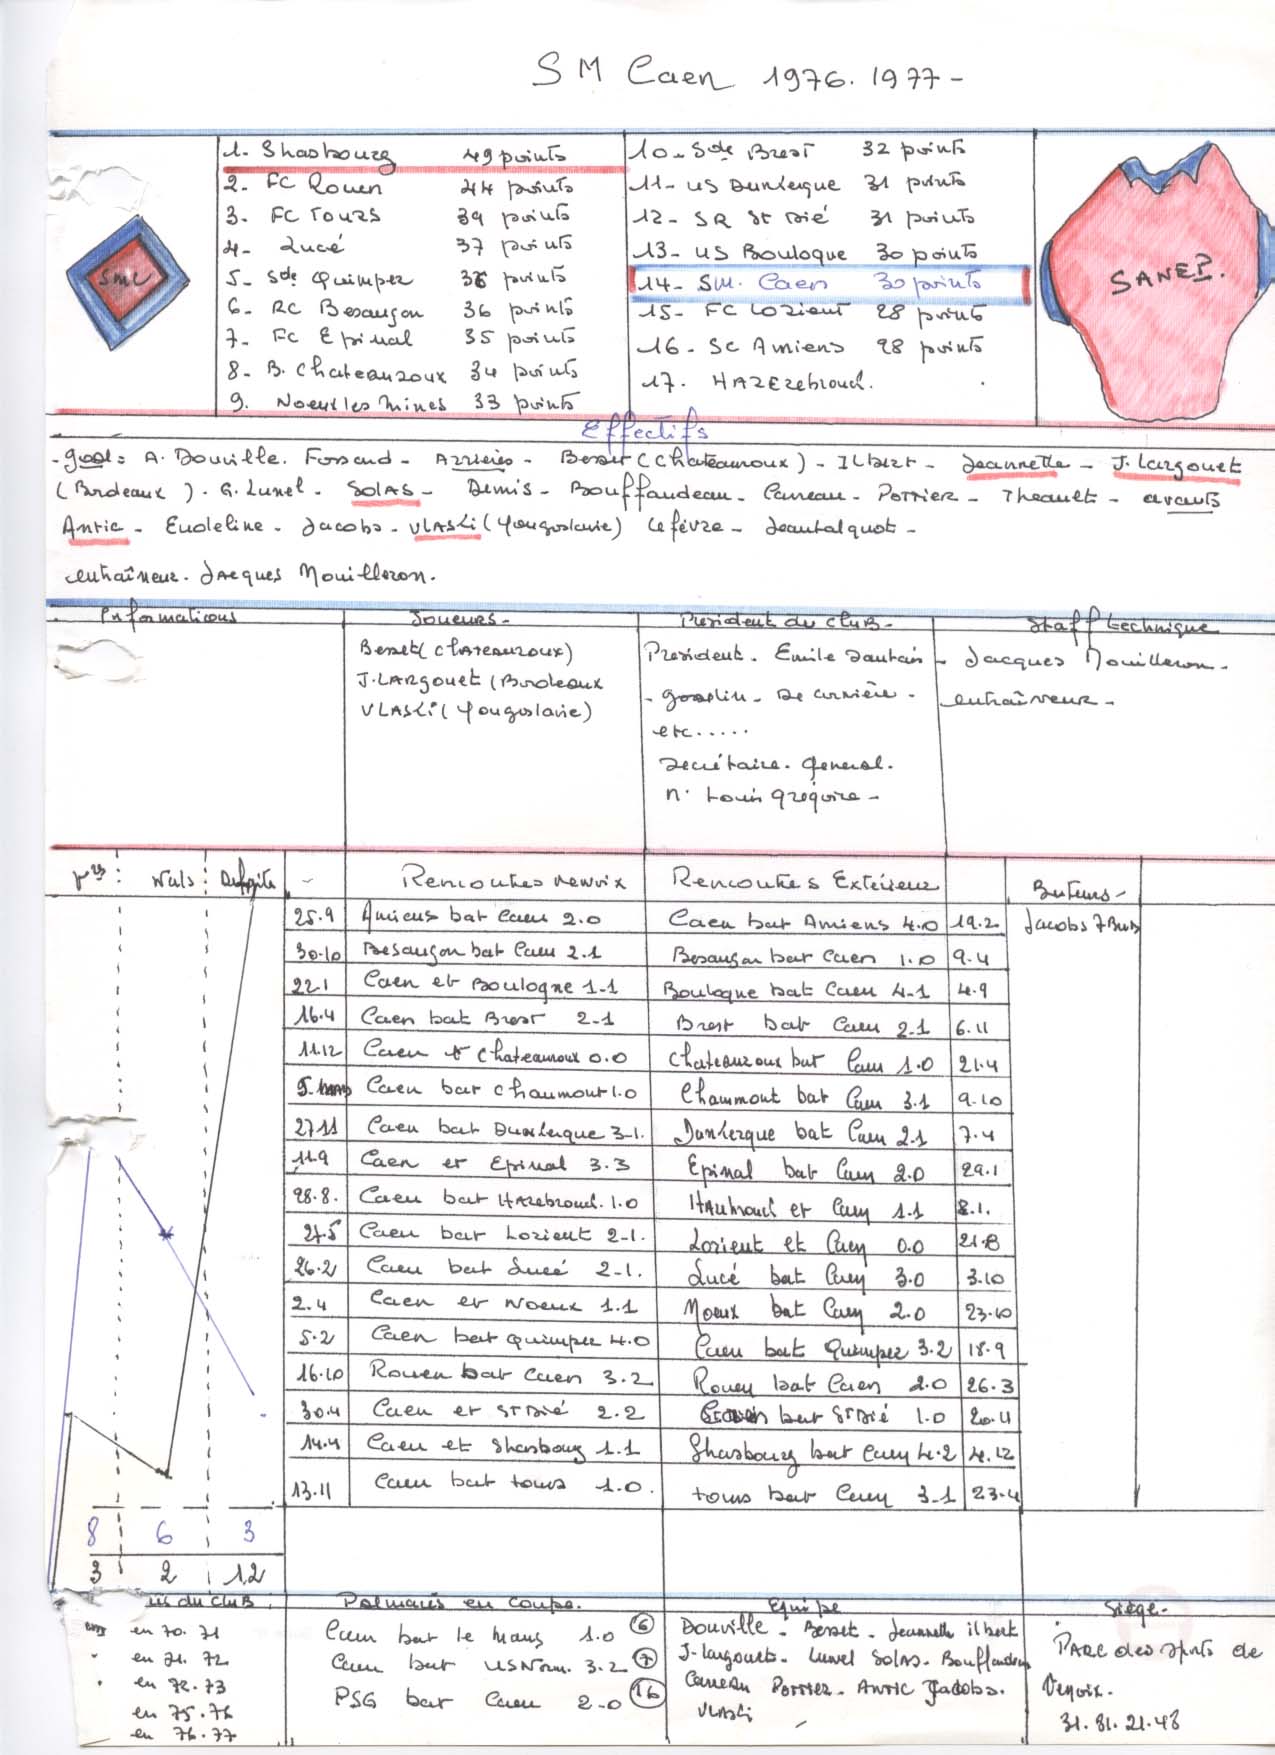 SM Caen 1976.1977-
1- Strasbourg 49 points
2- FC Rouen 44 points
3- FC Tours 39 points
4- Lucé 37 points
5- Sde Quimper 36 points
6- RC Besançon 36 points
7- FC Epinal 35 points
8- B. Chateauroux 34 points
9. Noeux les Mines 33 points
10- Sde Brest 32 points
11- US Dunkerque 31 points
12- SR St Dié 31 points
13- US Boulogne 30 points
14- SM. Caen 30 points
15- FC Lorient 28 points
16- SC Amiens 28 points
17. HAZEzebrouck.
SMC
SANEP.
Effectifs
-goal: A. Douville. Fossard - Azzieres - Besset (Chateauroux) - Ilbert - Jeannette - J. Largouet
(Bordeaux). G. Lunel - SOLAS - Demis - Bouffandeau. Carreau - Pottier - Theault - avants
Antic - Eudeline - Jacobs - VLASLi (Yougoslavie) Lefévre - Jeautalquot -
entraîneur. Jacques Mouilleron.
Informations
Joueurs-
President du club-
Staff technique
Besset (CHATEAUROUX)
J. LARgouet (Bordeaux
VLASLi (Yougoslavie)
President. Emile Dautais
- gosselin - De carrière -
etc.....
Secrétaire. general.
Louis Grégoire -
- Jacques Mouilleron -
entraîneur -
Nuls Défaite -
Rencontres Venoix
Rencontres Extérieur
Buteurs-
25.9 Amiens bat Caen 2.0 Caen bat Amiens 4.0 19.2 Jacobs 7 Buts
30.10 Besançon bat Caen 2.1 Besançon bat Caen 1.0 9.4
22.1 Caen et Boulogne 1-1 Boulogne bat Caen 4-1 4.9
16.4 Caen bat Brest 2-1 Brest bat Caen 2.1 6.11
11.12 Caen et Chateauroux 0.0 Chateauroux bat Caen 1.0 21.4
5.mars Caen bat Chaumont 1.0 Chaumont bat Caen 3.1 9.10
27.11 Caen bat Dunkerque 3-1. Dunkerque bat Caen 2.1 7.4
11.9 Caen et Epinal 3.3 Epinal bat Caen 2.0 29.1
28.8. Caen bat HAzebrouck. 1.0 HAzebrouck et Caen 1.1 8.1.
27.5 Caen bat Lorient 2-1. Lorient et Caen 0.0 21.8
26.2 Caen bat Lucé 2-1. Lucé bat Caen 3.0 3.10
2.4 Caen et Noeux 1.1 Noeux bat Caen 2.0 23.10
5.2 Caen bat Quimper 4.0 Caen bat Quimper 3.2 18.9
16.10 Rouen bat Caen 3.2 Rouen bat Caen 2.0 26.3
30.4 Caen et St Dié 2.2 bat St Dié 1.0 20.4
14.4 Caen et Strasbourg 1.1 Strasbourg bat Caen 4.2 4.12
13.11 Caen bat tours 1.0. tours bat Caen 3-1 23.4
8 6 3
3 2 12
du CluB.
en 70.71
en 71.72
en 72.73
en 75.76
en 76.77
Palmarés en Coupe.
Caen bat le Mans 1.0 6
Caen bat USNorm. 3.2 7
PSG bat Caen 2-0 16
Equipe
Douville - Besset - Jeannette ilbert
J. largouet. Lunel SOLAS. Bouffandeau
Carreau Pottier - ANTIC Jacobs.
VLASLi
Siège-
PARC des sports de
Venoix.
31.81.21.43